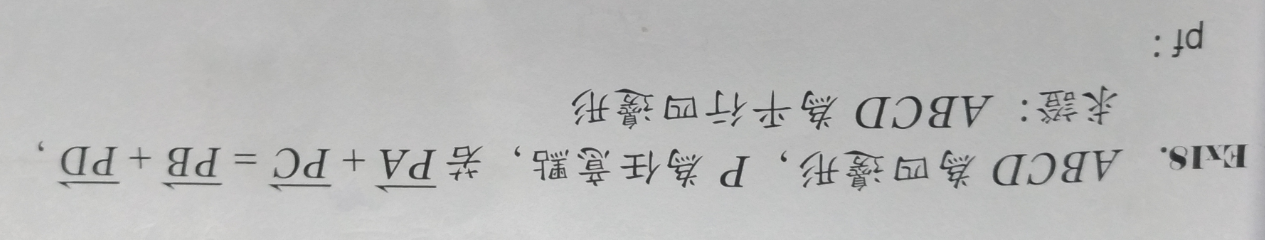 Ex18. ABCD 為四邊形，P 為任意點，若 $\overrightarrow{PA} + \overrightarrow{PC} = \overrightarrow{PB} + \overrightarrow{PD}$，
求證：ABCD 為平行四邊形
pf：